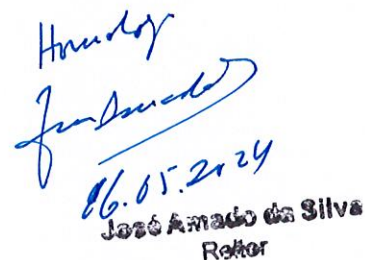 Homologo
16.05.2024
José Amado da Silva
Reitor